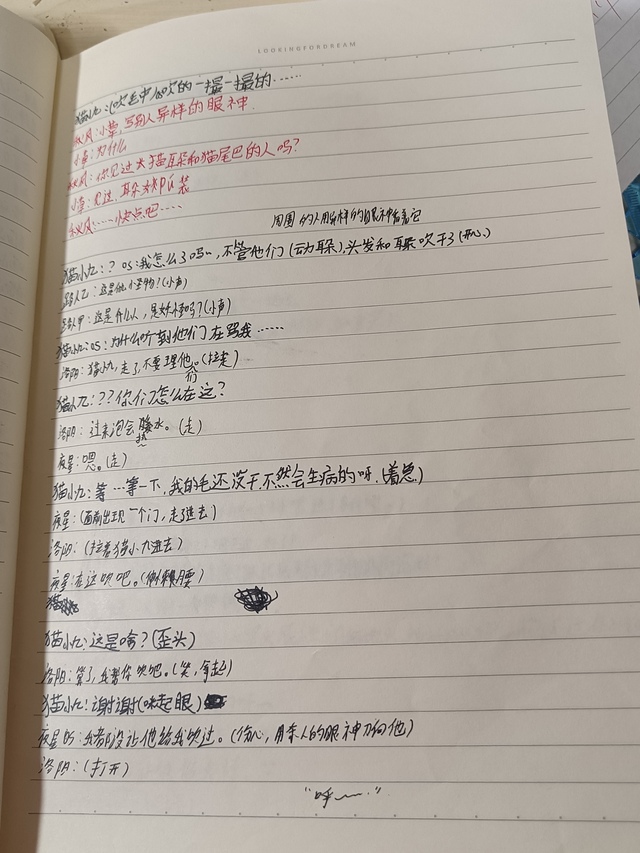 LOOKINGFORDREAM
猫小九:(吹毛中)吹的一撮一撮的……
秋风:小草 写别人异样的眼神
小草:为什么
秋风:你见过大猫耳朵和猫尾巴的人吗?
小草:见过,耳朵
秋风:……快点吧……
周围的人用异样的眼神看着它
猫小九:? os:我怎么了吗…,不管他们(动耳朵),头发和耳朵吹干了(开心)
路人乙:这是什么怪物?(小声)
路人甲:这是什么人,是妖怪吗?(小声)
猫小九:os:为什么听到他们在骂我……
洛阴:猫小九,走了,不要理他们。(拉走)
猫小九:??你们怎么在这?
洛阴:过来泡会水。(走)
夜星:嗯。(走)
猫小九:等…等一下,我的毛还没干,不然会生病的呀.(着急)
夜星:(面前出现一个门,走了进去)
洛阴:(拉着猫小九进去)
夜星:在这吹吧。(伸懒腰)
猫小九:这是啥?(歪头)
洛阴:算了,我帮你吹吧。(笑,拿起)
猫小九:谢谢(眯起眼)
夜星:我都没让他给我吹过。(伤心,用杀人的眼神刀向他)
洛阴:(打开)
"呼~…"